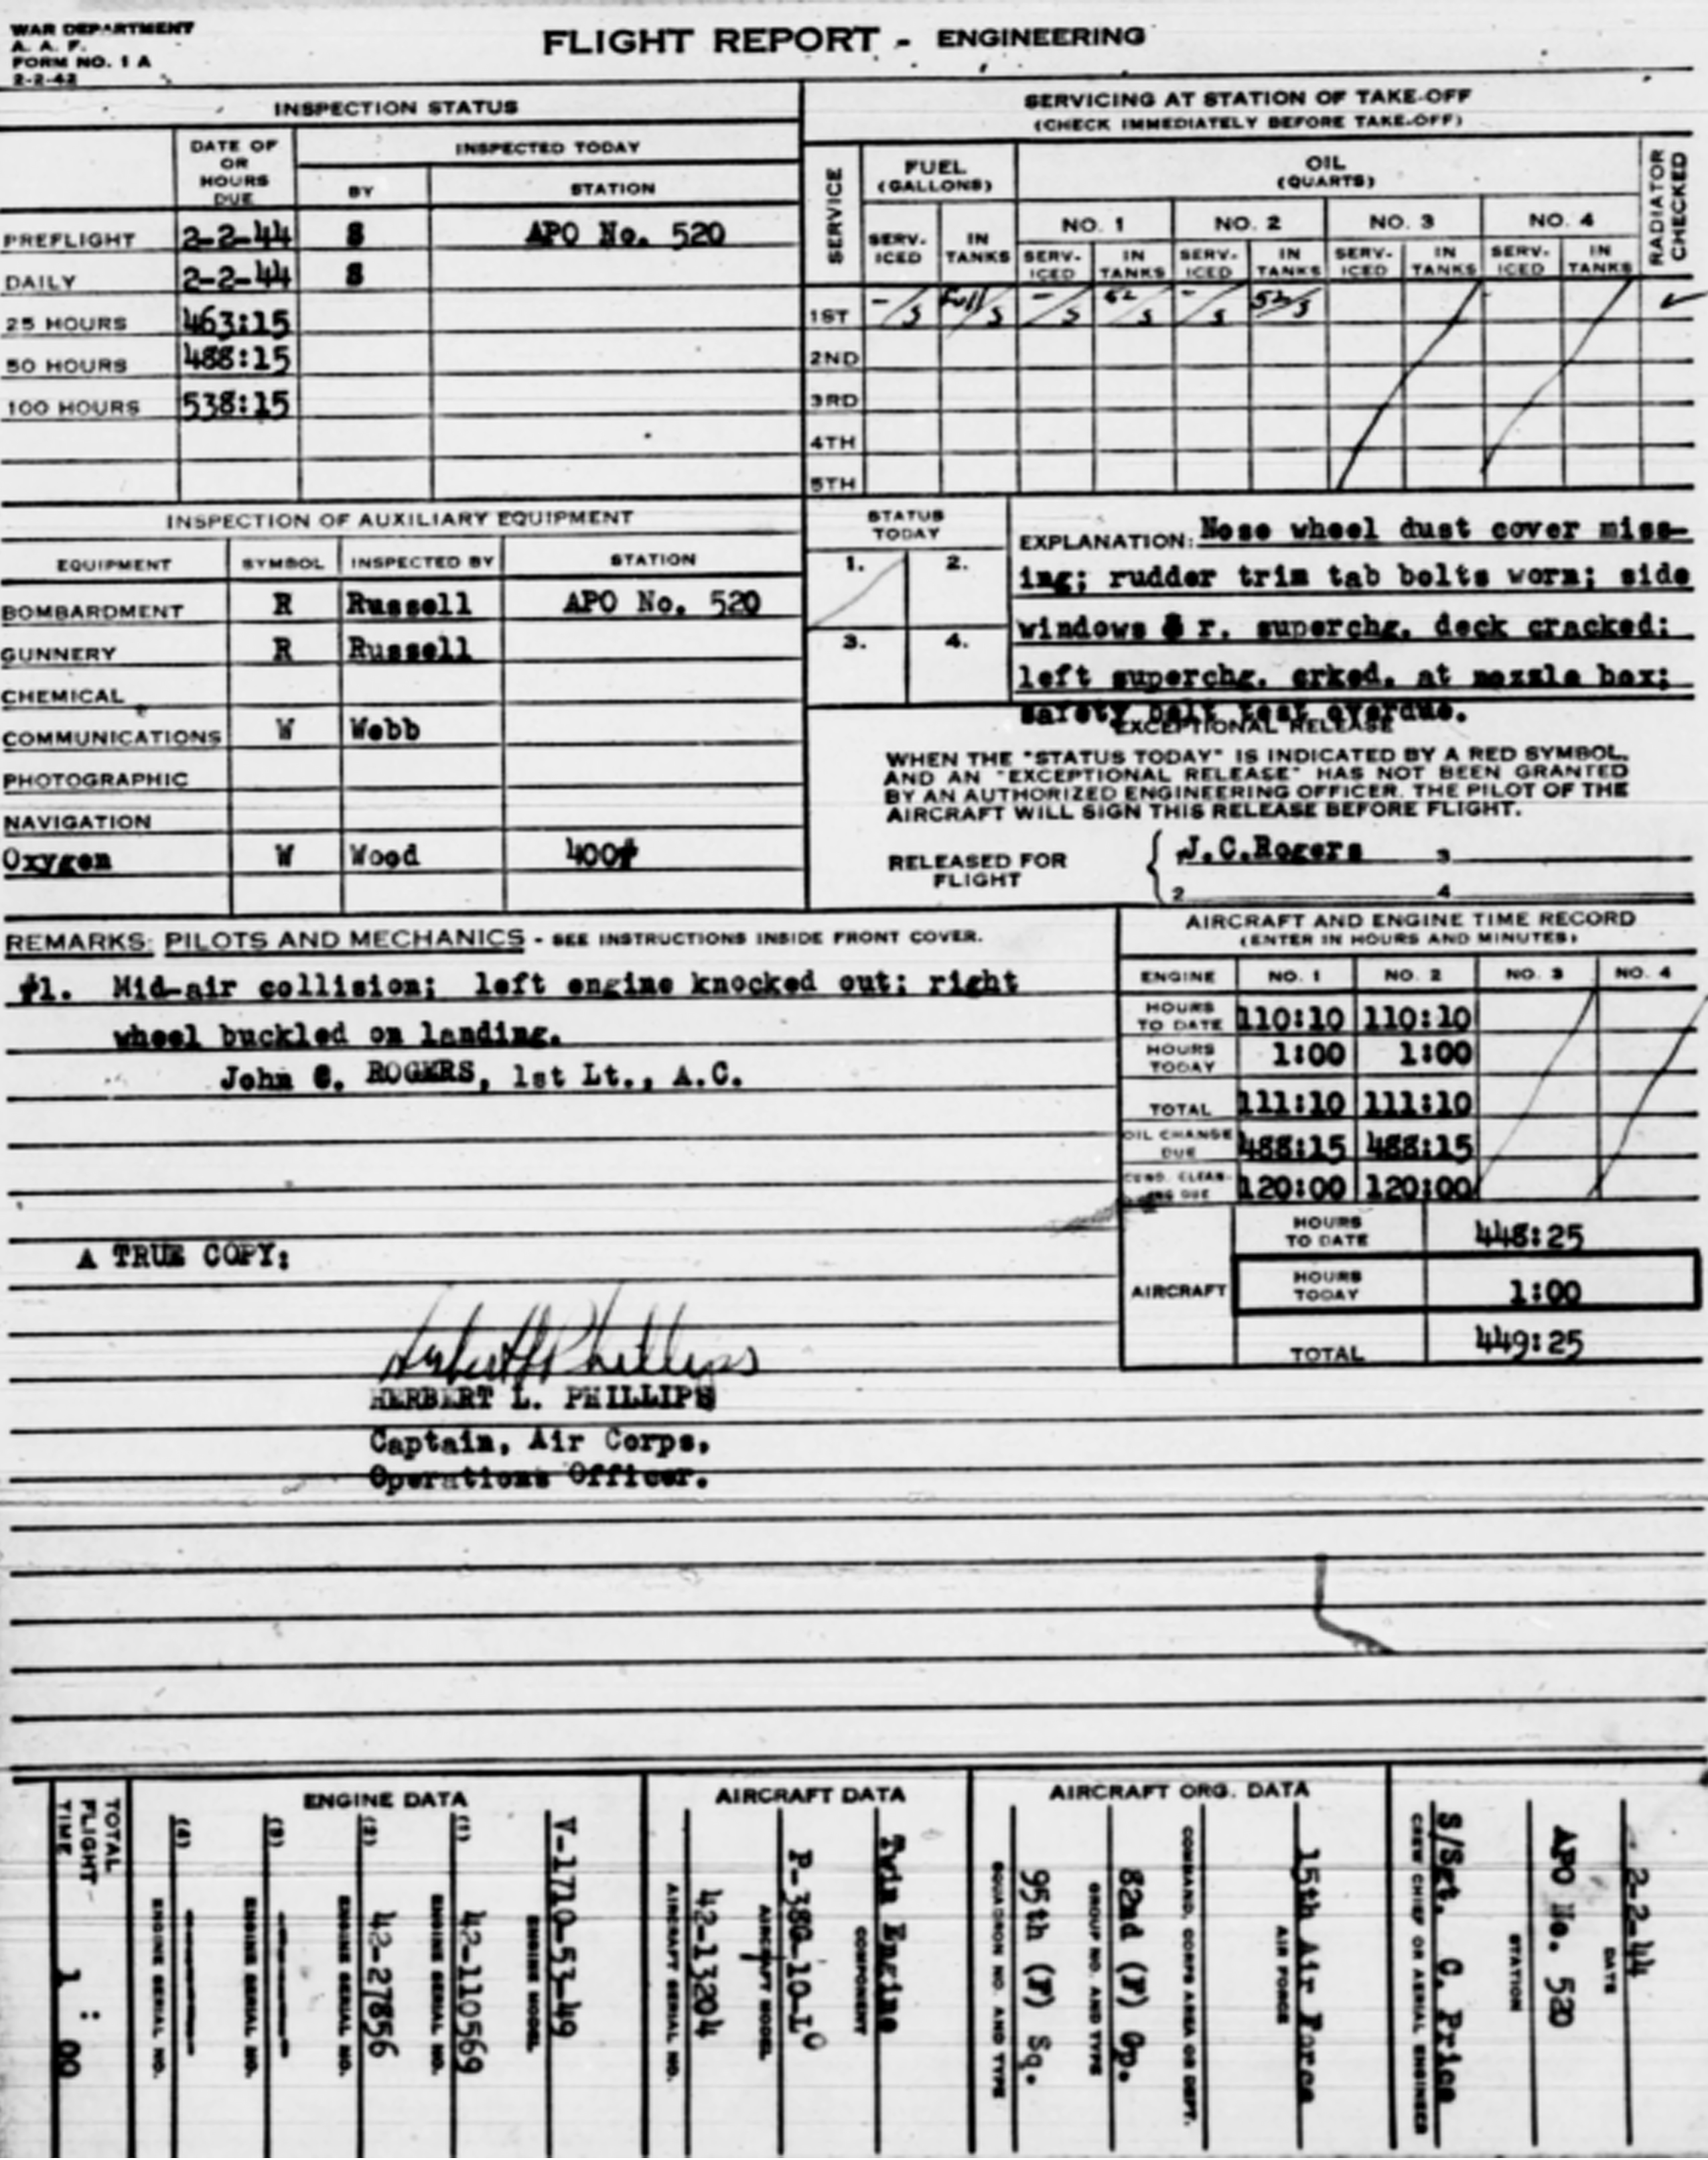 WAR DEPARTMENT
A. A. F.
FORM NO. 1 A
2-2-42
FLIGHT REPORT - ENGINEERING
INSPECTION STATUS
DATE OF OR HOURS DUE
INSPECTED TODAY
BY STATION
PREFLIGHT 2-2-44 S APO No. 520
DAILY 2-2-44 S
25 HOURS 463:15
50 HOURS 488:15
100 HOURS 538:15
SERVICING AT STATION OF TAKE-OFF
(CHECK IMMEDIATELY BEFORE TAKE-OFF)
SERVICE
FUEL
(GALLONS)
OIL
(QUARTS)
RADIATOR CHECKED
NO. 1 NO. 2 NO. 3 NO. 4
SERV-ICED IN TANKS SERV-ICED IN TANKS SERV-ICED IN TANKS SERV-ICED IN TANKS SERV-ICED IN TANKS
1ST -/s Full/s -/s 52/s -/s 52/s ✓
2ND
3RD
4TH
5TH
INSPECTION OF AUXILIARY EQUIPMENT
EQUIPMENT SYMBOL INSPECTED BY STATION
BOMBARDMENT R Russell APO No. 520
GUNNERY R Russell
CHEMICAL
COMMUNICATIONS W Webb
PHOTOGRAPHIC
NAVIGATION
Oxygen W Wood 400#
STATUS TODAY
1. 2.
3. 4.
EXPLANATION: Nose wheel dust cover miss-
ing; rudder trim tab bolts worn; side
windows & r. superchg. deck cracked;
left superchg. crked. at nozzle box;
safety belt test overdue.
EXCEPTIONAL RELEASE
WHEN THE "STATUS TODAY" IS INDICATED BY A RED SYMBOL,
AND AN "EXCEPTIONAL RELEASE" HAS NOT BEEN GRANTED
BY AN AUTHORIZED ENGINEERING OFFICER, THE PILOT OF THE
AIRCRAFT WILL SIGN THIS RELEASE BEFORE FLIGHT.
RELEASED FOR FLIGHT
J.C.Rogers 3
2 4
REMARKS: PILOTS AND MECHANICS - SEE INSTRUCTIONS INSIDE FRONT COVER.
#1. Mid-air collision; left engine knocked out; right
wheel buckled on landing.
John C. ROGERS, 1st Lt., A.C.
A TRUE COPY:
Herbert L Phillips
HERBERT L. PHILLIPS
Captain, Air Corps,
Operations Officer.
AIRCRAFT AND ENGINE TIME RECORD
(ENTER IN HOURS AND MINUTES)
ENGINE NO. 1 NO. 2 NO. 3 NO. 4
HOURS TO DATE 110:10 110:10
HOURS TODAY 1:00 1:00
TOTAL 111:10 111:10
OIL CHANGE DUE 488:15 488:15
CUNO. CLEAN-ING DUE 120:00 120:00
AIRCRAFT
HOURS TO DATE 448:25
HOURS TODAY 1:00
TOTAL 449:25
2-2-44
DATE
APO No. 520
STATION
S/Sgt. C. Price
CREW CHIEF OR AERIAL ENGINEER
AIRCRAFT ORG. DATA
15th Air Force
AIR FORCE
COMMAND, CORPS AREA OR DEPT.
82nd (F) Gp.
GROUP NO. AND TYPE
95th (F) Sq.
SQUADRON NO. AND TYPE
AIRCRAFT DATA
Twin Engine
COMPONENT
P-38G-10-LO
AIRCRAFT MODEL
42-13204
AIRCRAFT SERIAL NO.
ENGINE DATA
V-1710-53-49
ENGINE MODEL
(1) 42-110569
ENGINE SERIAL NO.
(2) 42-27856
ENGINE SERIAL NO.
(3)
ENGINE SERIAL NO.
(4)
ENGINE SERIAL NO.
TOTAL FLIGHT TIME 1 : 00